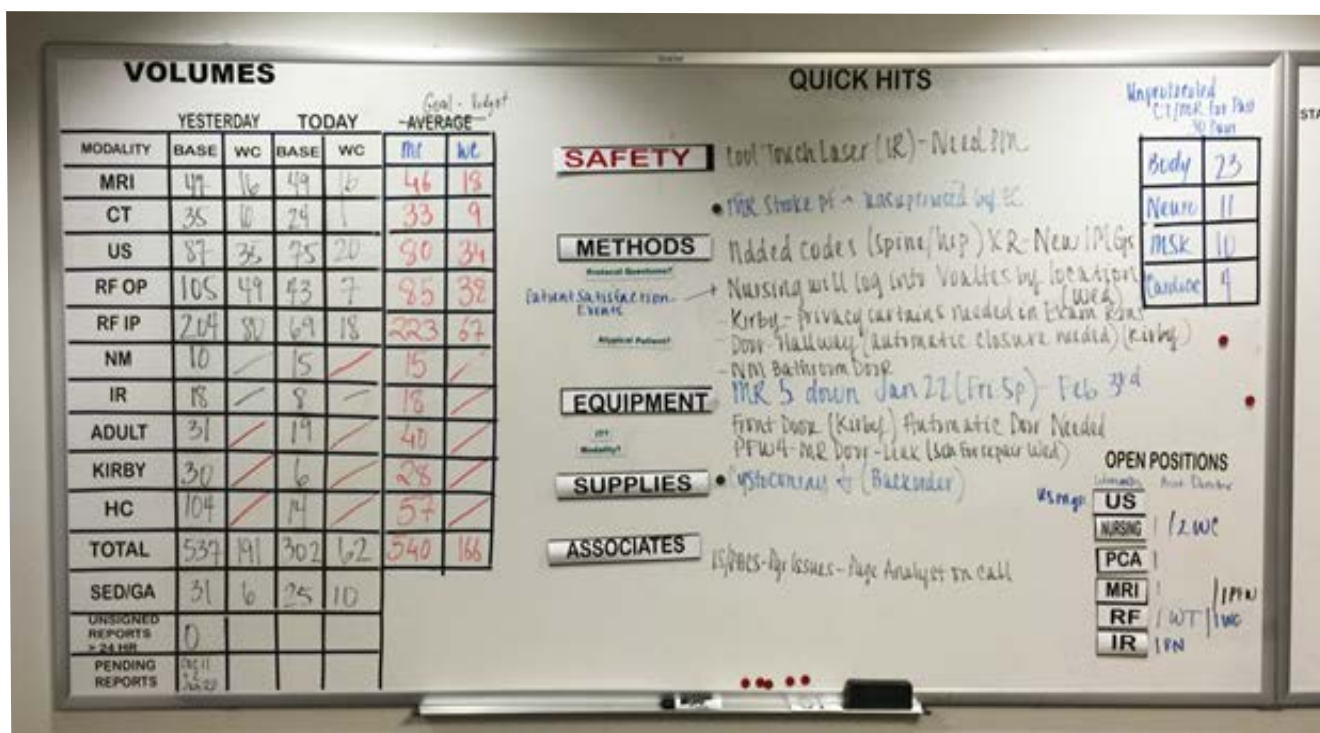 VOLUMES
Goal - Budget
YESTERDAY TODAY AVERAGE
MODALITY BASE WC BASE WC MC WC
MRI 47 16 49 16 46 18
CT 35 10 29 1 33 9
US 87 35 75 20 80 34
RF OP 105 49 43 7 85 38
RF IP 204 80 69 18 223 67
NM 10 15 15
IR 18 8 18
ADULT 31 19 40
KIRBY 30 6 28
HC 104 14 57
TOTAL 537 191 302 62 540 166
SED/GA 31 6 25 10
UNSIGNED REPORTS > 24 HR 0
PENDING REPORTS
QUICK HITS
SAFETY Cool Touch Laser (IR) - Need PIN
MR Stroke pt by EC
METHODS Added codes (Spine/hip) XR - New
Protocol Questions?
Nursing will log into Voaltes by location
(Wed)
Patient Satisfaction
Events
Kirby - Privacy curtains needed in Exam Rms
Atypical Patient?
Door - Hallway (automatic closure needed) (Kirby)
- NM Bathroom Door
EQUIPMENT MR 5 down Jan 22 (Fri 5p) - Feb 3rd
Front Door (Kirby) Automatic Door Needed
Modality?
MR Door - (Sch for repair Wed)
SUPPLIES (Backorder)
ASSOCIATES IS/PACS - Pgr Issues - Page Analyst on call
Unprotocoled
CT/MR for Past
30 Days
Body 23
Neuro 11
MSK 10
Cardiac 4
OPEN POSITIONS
US mgr US
NURSING 1 / 2 WC
PCA 1
MRI 1
RF 1 WT / 1 WC
IR 1 RN
STA